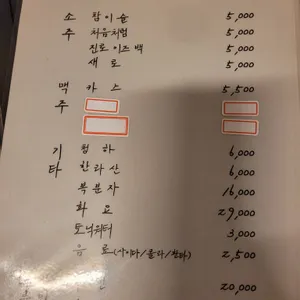 소 참이슬 5,000
주 처음처럼 5,000
진로 이즈 백 5,000
새로 5,000
맥 카스 5,500
주
기 청하 6,000
타 한라산 6,000
복분자 16,000
화요 29,000
토닉워터 3,000
음료(사이다/콜라/환타) 2,500
20,000